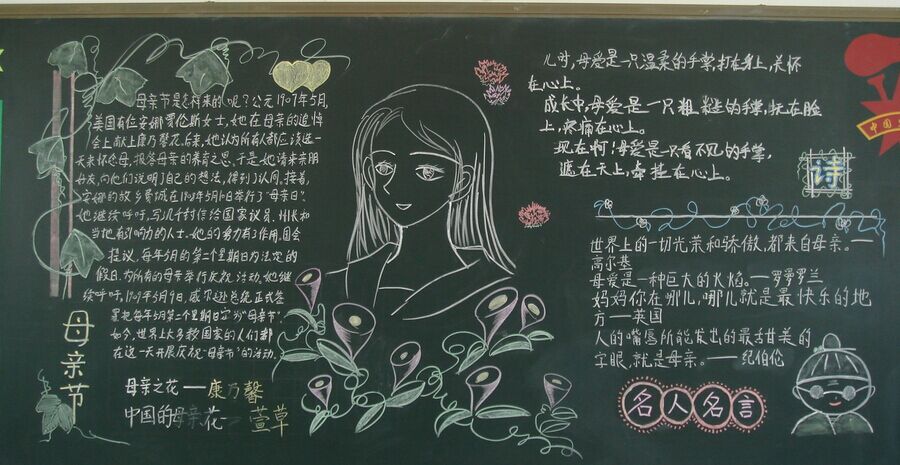 母亲节是怎样来的呢？公元1907年5月，
美国有位安娜罗伦斯女士，她在母亲的追悼
会上献上康乃馨花。后来，她认为所有人都应该选一
天来怀念母亲，报答母亲的养育之恩，于是，她请来亲朋
好友，向他们说明了自己的想法，得到了认同。接着，
安娜的故乡费城在1908年5月10日举行了“母亲日”。
她继续呼吁，写几千封信给国家议员、州长和
当地有影响力的人士。她的努力有了作用。国会
提议，每年5月的第二个星期日为法定的
假日，为所有的母亲举行庆祝活动。她继
续呼吁，5月9日，威尔逊总统正式签
署把每年5月第二个星期日定为“母亲节”。
如今，世界上大多数国家的人们都
在这一天开展庆祝“母亲节”的活动。
母亲之花——康乃馨
中国的母亲花——萱草
母亲节
儿时，母爱是一只温柔的手掌，打在身上，关怀
在心上。
成长中，母爱是一只粗糙的手掌，抚在脸
上，疼痛在心上。
现在啊！母爱是一只看不见的手掌，
遮在天上，牵挂在心上。
诗
中国
世界上的一切光荣和骄傲，都来自母亲。——
高尔基
母爱是一种巨大的火焰。——罗曼罗兰
妈妈你在哪儿，哪儿就是最快乐的地
方——英国
人的嘴唇所能发出的最甜美的
字眼，就是母亲。——纪伯伦
名人名言